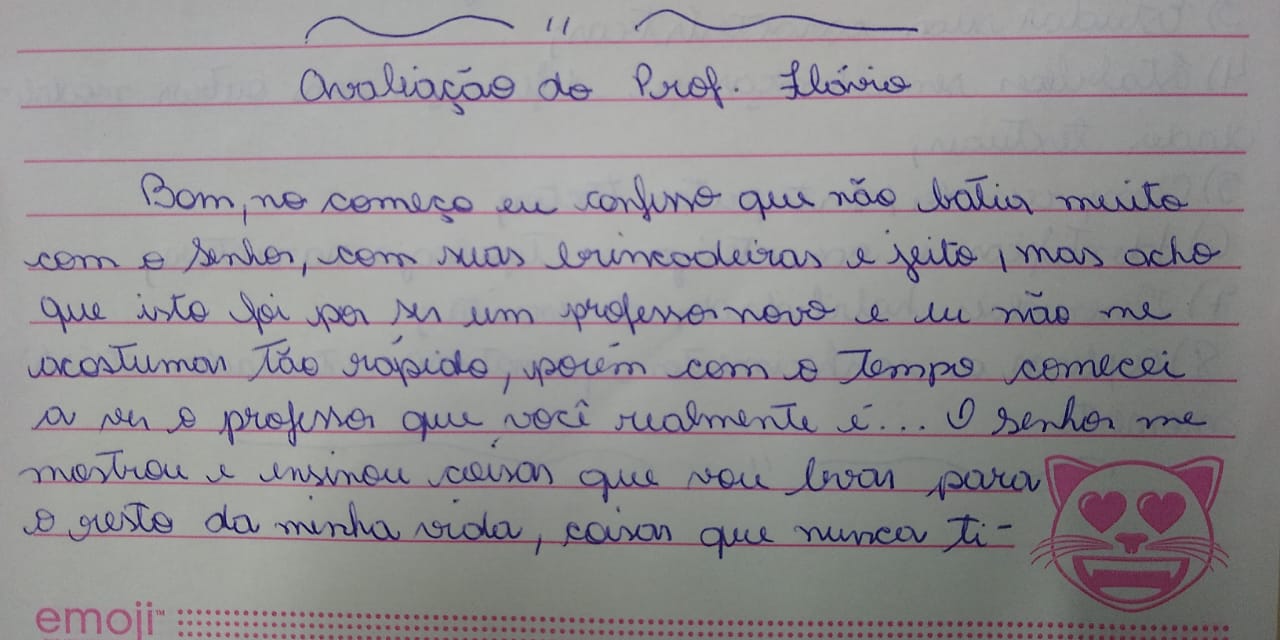 "
Avaliação do Prof. Flávio
Bom, no começo eu confesso que não batia muito
com o senhor, com suas brincadeiras e jeito, mas acho
que isto foi por ser um professor novo e eu não me
acostumar tão rápido, porém com o tempo comecei
a ver o professor que você realmente é... O senhor me
mostrou e ensinou coisas que vou levar para
o resto da minha vida, coisas que nunca ti-
emoji™